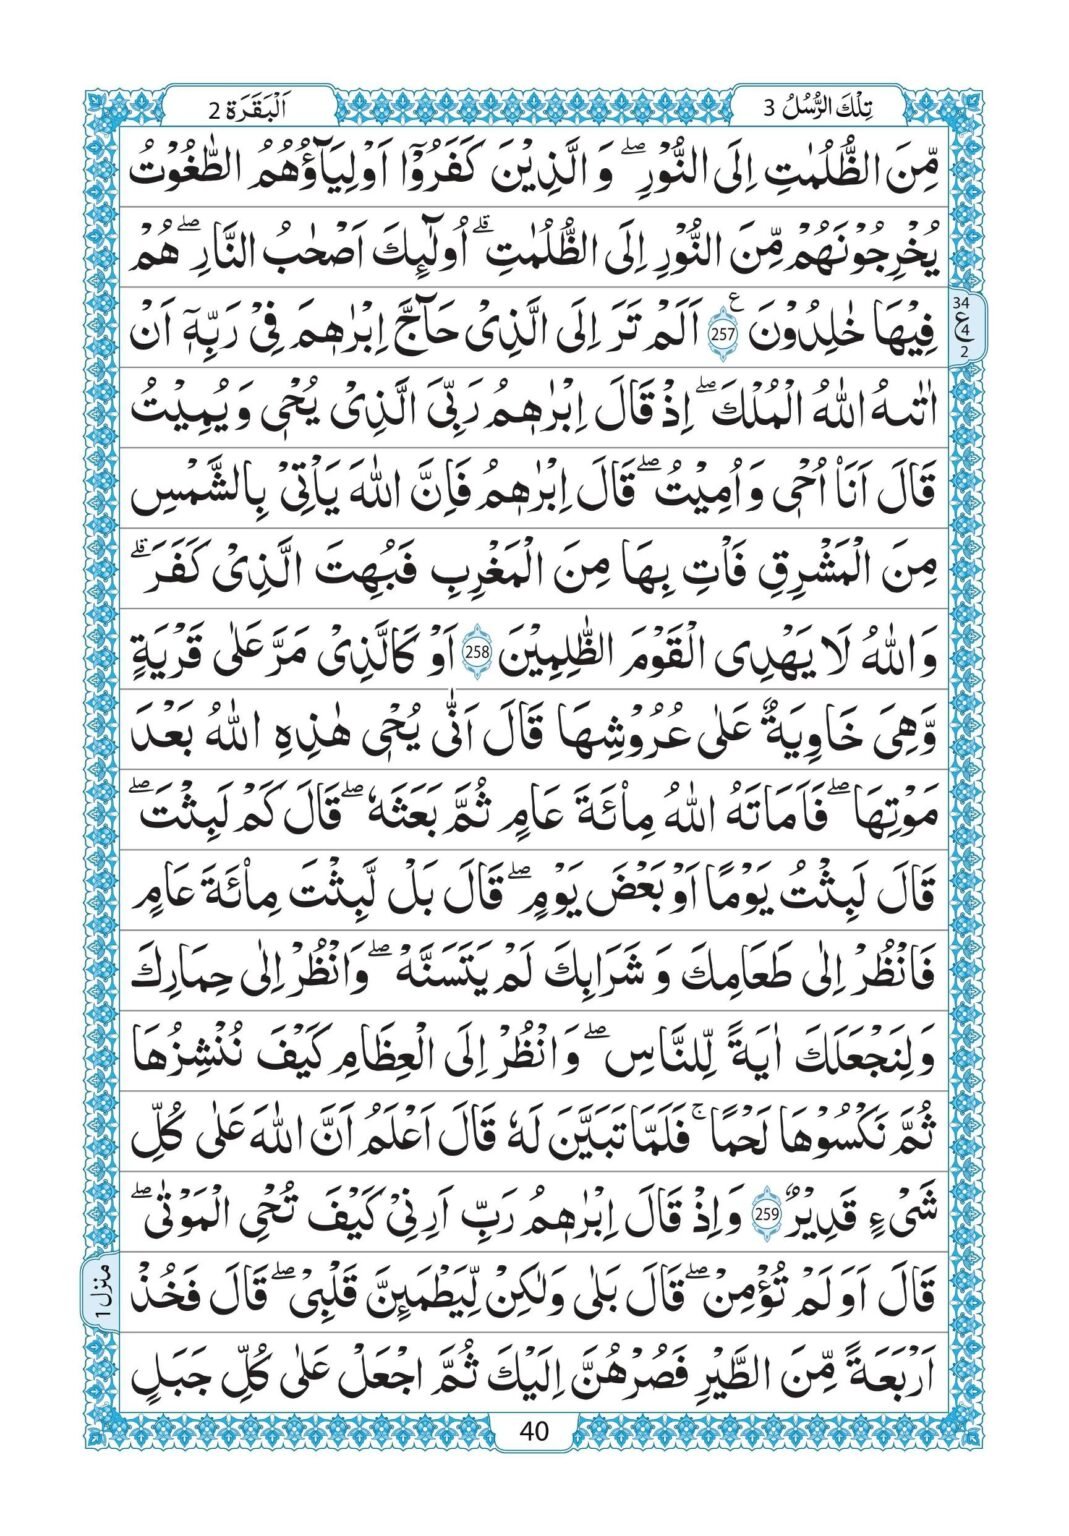 تِلْكَ الرُّسُلُ 3
اَلْبَقَرَة 2
مِّنَ الظُّلُمٰتِ اِلَى النُّوْرِ ۖ وَ الَّذِيْنَ كَفَرُوْۤا اَوْلِيَآؤُهُمُ الطَّاغُوْتُ
يُخْرِجُوْنَهُمْ مِّنَ النُّوْرِ اِلَى الظُّلُمٰتِ ؕ اُولٰٓئِكَ اَصْحٰبُ النَّارِ ۖ هُمْ
فِيْهَا خٰلِدُوْنَ ع 257 اَلَمْ تَرَ اِلَى الَّذِيْ حَآجَّ اِبْرٰهٖمَ فِيْ رَبِّهٖۤ اَنْ
34
ع
4
2
اٰتٰىهُ اللّٰهُ الْمُلْكَ ۖ اِذْ قَالَ اِبْرٰهٖمُ رَبِّيَ الَّذِيْ يُحْيٖ وَ يُمِيْتُ
قَالَ اَنَا۠ اُحْيٖ وَ اُمِيْتُ ۖ قَالَ اِبْرٰهٖمُ فَاِنَّ اللّٰهَ يَاْتِيْ بِالشَّمْسِ
مِنَ الْمَشْرِقِ فَاْتِ بِهَا مِنَ الْمَغْرِبِ فَبُهِتَ الَّذِيْ كَفَرَ ۗ
وَاللّٰهُ لَا يَهْدِى الْقَوْمَ الظّٰلِمِيْنَ 258 اَوْ كَالَّذِيْ مَرَّ عَلٰى قَرْيَةٍ
وَّهِيَ خَاوِيَةٌ عَلٰى عُرُوْشِهَا قَالَ اَنّٰى يُحْيٖ هٰذِهِ اللّٰهُ بَعْدَ
مَوْتِهَا ۖ فَاَمَاتَهُ اللّٰهُ مِائَةَ عَامٍ ثُمَّ بَعَثَهٗ ۖ قَالَ كَمْ لَبِثْتَ ۖ
قَالَ لَبِثْتُ يَوْمًا اَوْ بَعْضَ يَوْمٍ ۖ قَالَ بَلْ لَّبِثْتَ مِائَةَ عَامٍ
فَانْظُرْ اِلٰى طَعَامِكَ وَ شَرَابِكَ لَمْ يَتَسَنَّهْ ۖ وَانْظُرْ اِلٰى حِمَارِكَ
وَلِنَجْعَلَكَ اٰيَةً لِّلنَّاسِ ۖ وَانْظُرْ اِلَى الْعِظَامِ كَيْفَ نُنْشِزُهَا
ثُمَّ نَكْسُوْهَا لَحْمًا ۚ فَلَمَّا تَبَيَّنَ لَهٗ قَالَ اَعْلَمُ اَنَّ اللّٰهَ عَلٰى كُلِّ
شَيْءٍ قَدِيْرٌ 259 وَاِذْ قَالَ اِبْرٰهٖمُ رَبِّ اَرِنِيْ كَيْفَ تُحْيِ الْمَوْتٰى ۖ
قَالَ اَوَلَمْ تُؤْمِنْ ۖ قَالَ بَلٰى وَلٰكِنْ لِّيَطْمَئِنَّ قَلْبِيْ ۖ قَالَ فَخُذْ
منزل 1
اَرْبَعَةً مِّنَ الطَّيْرِ فَصُرْهُنَّ اِلَيْكَ ثُمَّ اجْعَلْ عَلٰى كُلِّ جَبَلٍ
40